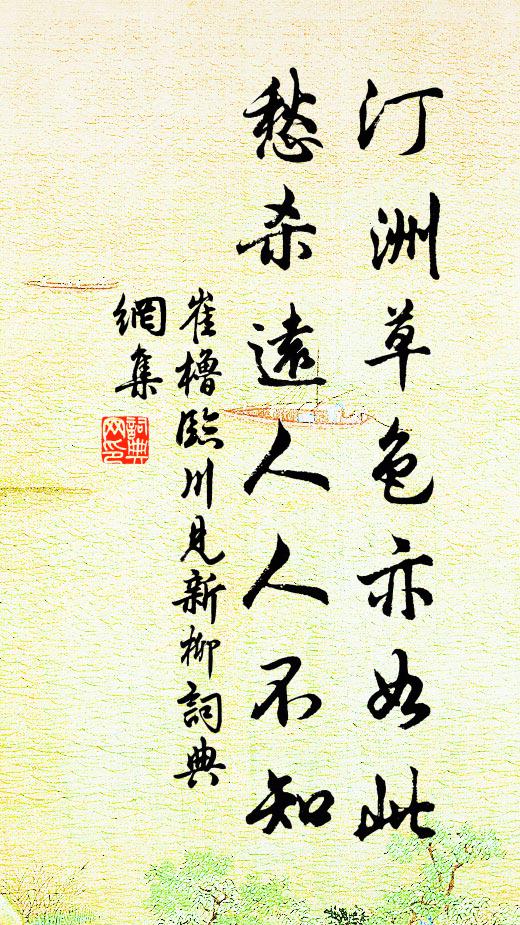 汀洲草色亦如此
愁杀遠人人不知
崔櫓臨川見新柳詞典
網集
詞典
网印